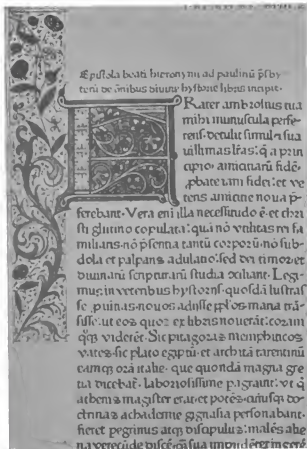 Epistola beati hieronymi ad paulinū p̄sby
teꝝ de oīnibus diuine hystorie libris incipit.
Rater ambrosius tua
mihi munuscula perfe
rens. detulit simul & sua
uissimas lr̄as: q̄ a prin
cipio amiciciarū fidē.
ꝓbate iam fidei: et ve
teris amicicie noua p̄
ferebant. Vera eni illa necessitudo ē. et chri
sti glutino copulata: quā nō vtilitas rei fa
miliaris. nō p̄sentia tantū corporū. nō sub
dola et palpans adulatio. sed dei timor. et
diuinarū scripturarū studia ꝯciliant. Legi
mus in veteribus hystorijs. quosdā lustras
se ꝓuintias. nouos adijsse ppl̄os. maria trā
sisse: ut eos quos ex libris nouerāt: coram
q̄ꝫ viderēt. Sic pitagoras memphiticos
vates. sic plato egiptū. et architā tarentinū
eamqꝫ orā italie. que quondā magna gre
tia dicebat̄. laboriosissime pagrauit: vt q̄
athenis magister erat. et potēs. cuiusqꝫ do
ctrinas achademie gignasia personabant.
fieret peregrinus atqꝫ discipulus: malēs alie
na verecūde discē. q̄ sua impudēter ingerē